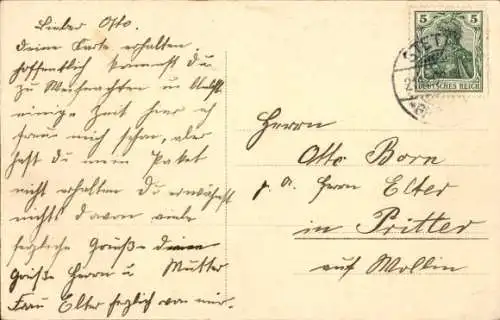 Lieber Otto.
Deine Karte erhalten.
hoffentlich kommst du
zu Weihnachten u
einige Zeit hier ich
freue mich schon, aber
hast du mein Paket
nicht erhalten Du erwähnst
nichts davon viele
herzliche Grüße
Grüße Herrn u Mutter
Frau Elter herzlich von mir.
5 5
STET
DEUTSCHES REICH
Herrn
Otto Born
p. a. Herrn Elter
in Pritter
auf Wollin